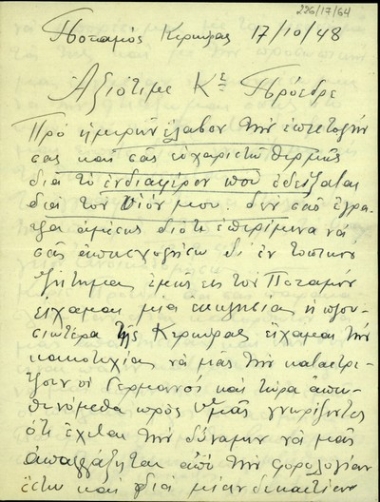 236/17/64
Ποταμός Κερκύρας 17/10/48
Αξιότιμε Κε Πρόεδρε
Πρό ημερών έλαβον την επιστολήν
σας και σας ευχαριστώ θερμώς
διά το ενδιαφέρον που εδείξαται
διά τον υιόν μου. δεν σας έγρα-
ψα αμέσως διότι επερίμενα να
σας απασχολήσω δι έν τοπικόν
ζήτημα, εμείς εις τον Ποταμόν
είχαμαι μία εκκλησία η πλου-
σιωτέρα της Κερκύρας είχαμαι την
κακοτυχίας να μας την καταστρέ-
ψουν οι Γερμανοί και τώρα απευ-
θυνόμεθα προς υμάς γνωρίζοντες
ότι έχεται την δύναμην να μας
απαλλάξηται από την φορολογίαν
έστω και διά μίαν δεκαετίαν